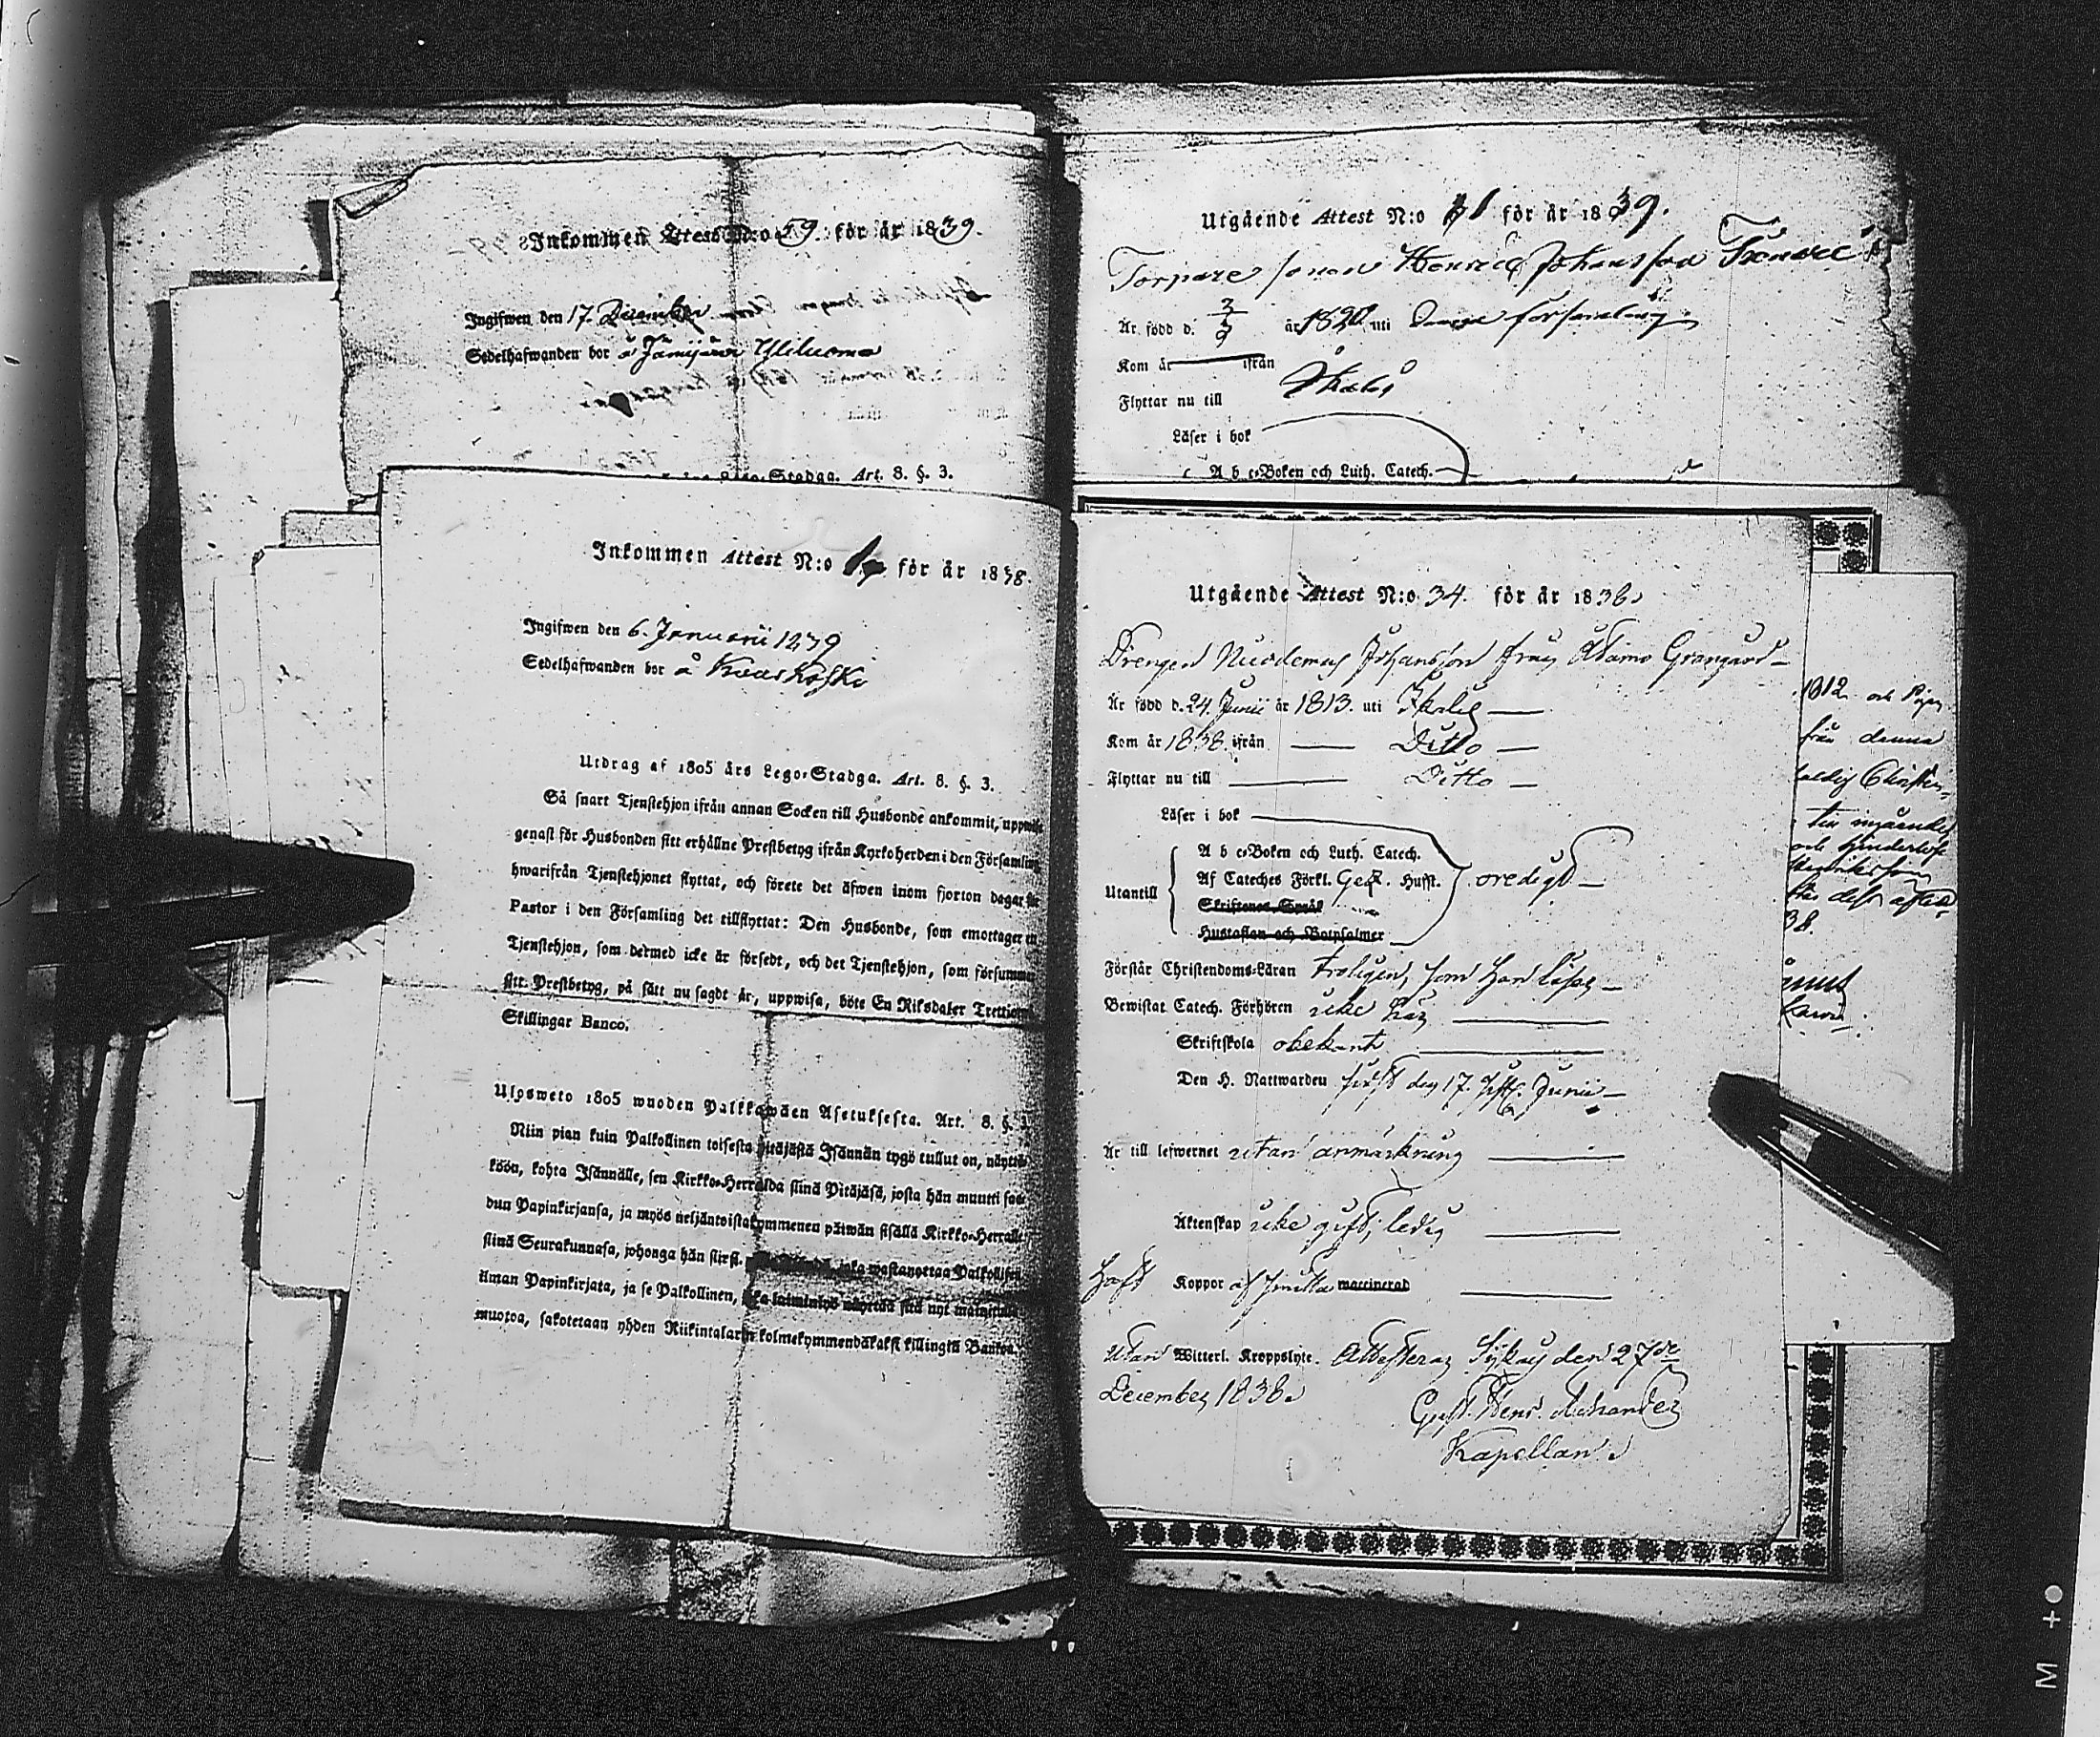 Inkommen Attest N:o 59. för år 1839.
Ingifwen den 17. December
Sedelhafwanden bor å Jämijärvi Yliluoma
Lego-Stadga. Art. 8. §. 3.
Inkommen Attest N:o för år 1838.
Ingifwen den 6. Januarii 1839
Sedelhafwanden bor å Kouskoski
Utdrag af 1805 års Lego-Stadga. Art. 8. §. 3.
Så snart Tjenstehjon ifrån annan Socken till Husbonde ankommit, uppwise
genast för Husbonden sitt erhållne Prestbetyg ifrån Kyrkoherden i den Församling
hwarifrån Tjenstehjonet flyttat, och förete det äfwen inom fjorton dagar för
Pastor i den Församling det tillflyttat: Den Husbonde, som emottager en
Tjenstehjon, som dermed icke är försedt, och det Tjenstehjon, som försummar
sitt Prestbetyg, på sätt nu sagdt är, uppwisa, böte En Riksdaler Trettiotwå
Skillingar Banco.
Ulosweto 1805 wuoden Palkkawäen Asetuksesta. Art. 8. §. 3.
Niin pian kuin Palkollinen toisesta pitäjästä Isännän tygö tullut on, näyttä-
köön, kohta Isännälle, sen Kirkko-Herralda siinä Pitäjäsä, josta hän muutti saa-
dun Papinkirjansa, ja myös neljäntoistakymmenen päiwän sisällä Kirkko-Herralle
siinä Seurakunnasa, johonga hän siirsi. joka wastanottaa Palkollisen
ilman Papinkirjata, ja se Palkollinen, joka laiminlyö näyttää sitä nyt mainitulla
muotoa, sakotetaan yhden Riikintalarin kolmekymmendäkaksi killingiä Bankoa.
Utgående Attest N:o 31 för år 1839.
Torpare sonen Henric Johansson
Är född d. 3/5 år 1820 uti denna församling
Kom år — ifrån
Flyttar nu till Ikalis
Läser i bok
A b c-Boken och Luth. Catech.
Utgående Attest N:o 34. för år 1838.
Drengen Nicodemus Johansson från Adams Grangård
Är född d. 24. Junii år 1813. uti Ikalis
Kom år 1838. ifrån — Ditto —
Flyttar nu till — Ditto —
Läser i bok
Utantill
A b c-Boken och Luth. Catech.
Af Cateches Förkl. Gez. Husst.
Skriftenes Språk
Hustaflan och Botpsalmer
oredigt —
Förstår Christendoms-Läran troligen, som han läser —
Bewistat Catech. Förhören icke här
Skriftskola obekant
Den H. Nattwarden sist den 17. sistl. Junii —
Är till lefwernet utan anmärkning
Äktenskap icke gift, ledig
Haft Koppor af smitta waccinerad
Utan Witterl. Kroppslyte. Attesteras den 27de
December 1838.
Kapellan.
1812. och
från denna
ledig
och hinderlös
38.